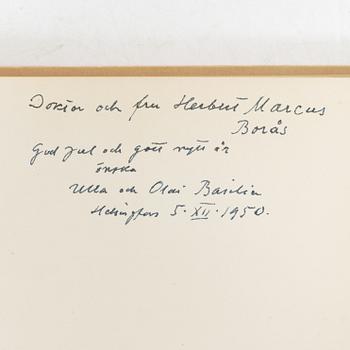 Doktor och fru Herbert Marcus
Borås
God jul och gott nytt år
önska
Ulla och Olav Basilier
Helsingfors 5·XII·1950.